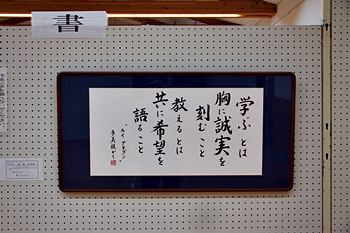 書
学ぶとは
胸に誠実を
刻むこと
教えるとは
共に希望を
語ること
ルイ・アラゴン